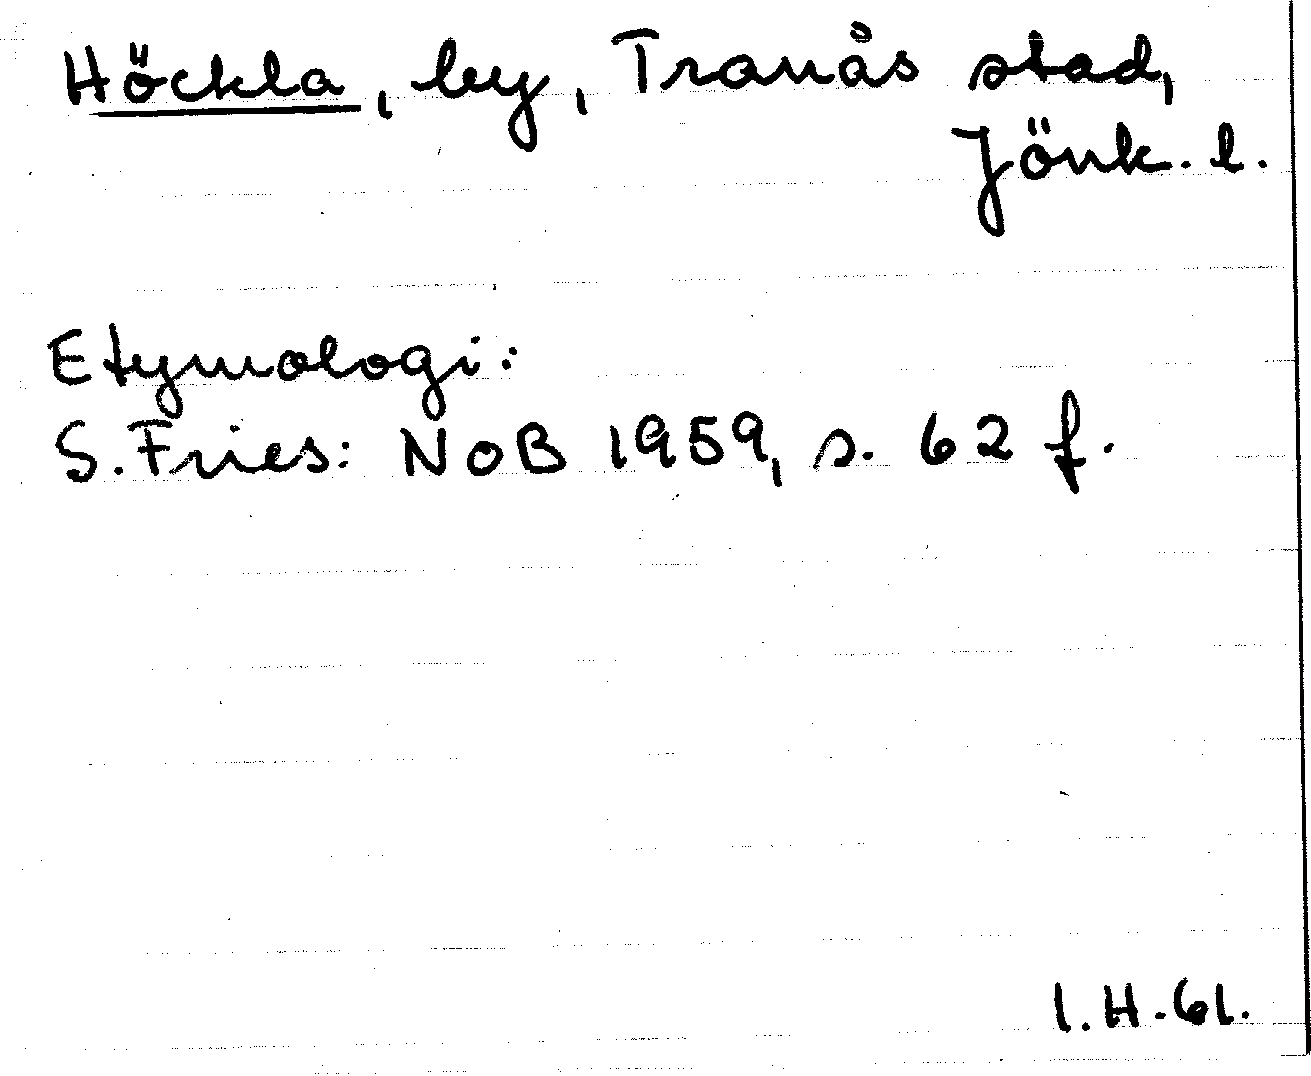 Höckla, by, Tranås stad,
Jönk. l.
Etymologi:
S. Fries: NoB 1959, s. 62 f.
I.H.61.